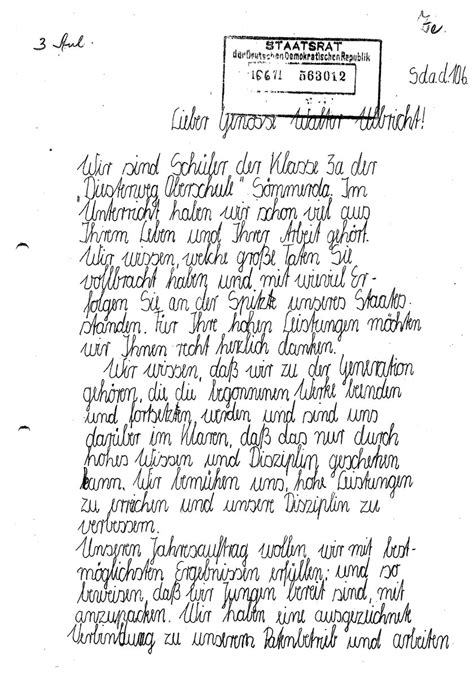 3 Anl.
STAATSRAT
der Deutschen Demokratischen Republik
16 6 71 563012
Lieber Genosse Walter Ulbricht!
Wir sind Schüler der Klasse 3a der
"Diesterweg Oberschule" Sömmerda. Im
Unterricht haben wir schon viel aus
Ihrem Leben und Ihrer Arbeit gehört.
Wir wissen, welche große Taten Sie
vollbracht haben und mit wieviel Er-
folgen Sie an der Spitze unseres Staates
standen. Für Ihre hohen Leistungen möchten
wir Ihnen recht herzlich danken.
Wir wissen, daß wir zu der Generation
gehören, die die begonnenen Werke beenden
und fortsetzten werden und sind uns
darüber im Klaren, daß das nur durch
hohes Wissen und Disziplin geschehen
kann. Wir bemühen uns, hohe Leistungen
zu erreichen und unsere Disziplin zu
verbessern.
Unseren Jahresauftrag wollen wir mit best-
möglichsten Ergebnissen erfüllen; und so
beweisen, daß wir Jungen bereit sind, mit
anzupacken. Wir haben eine ausgezeichnete
Verbindung zu unserem Patenbetrieb und arbeiten